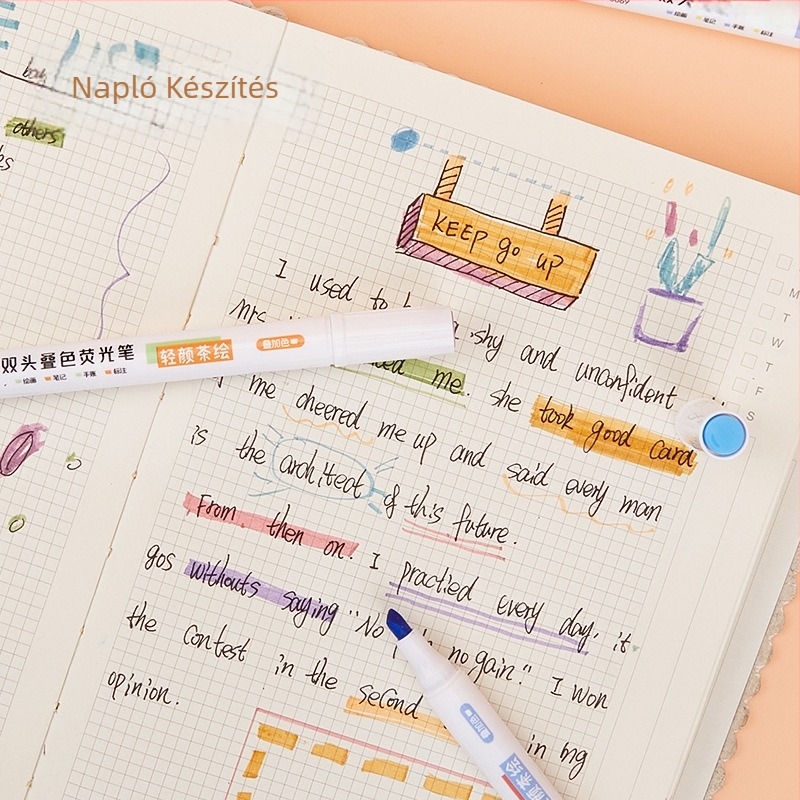 Napló Készítés
others
KEEP go up
I used to shy and unconfident
Mrs
me. she took good Card
me cheered me up and said every man
is the architect of this future.
From then on. I practied every day, it
gos withouts saying "No no gain." I won
the contest in the second in mg
opinion.
双头叠色荧光笔 轻颜茶绘 叠加色
绘画 笔记 手账 标注
M
T
W
T
F
S
叠加色